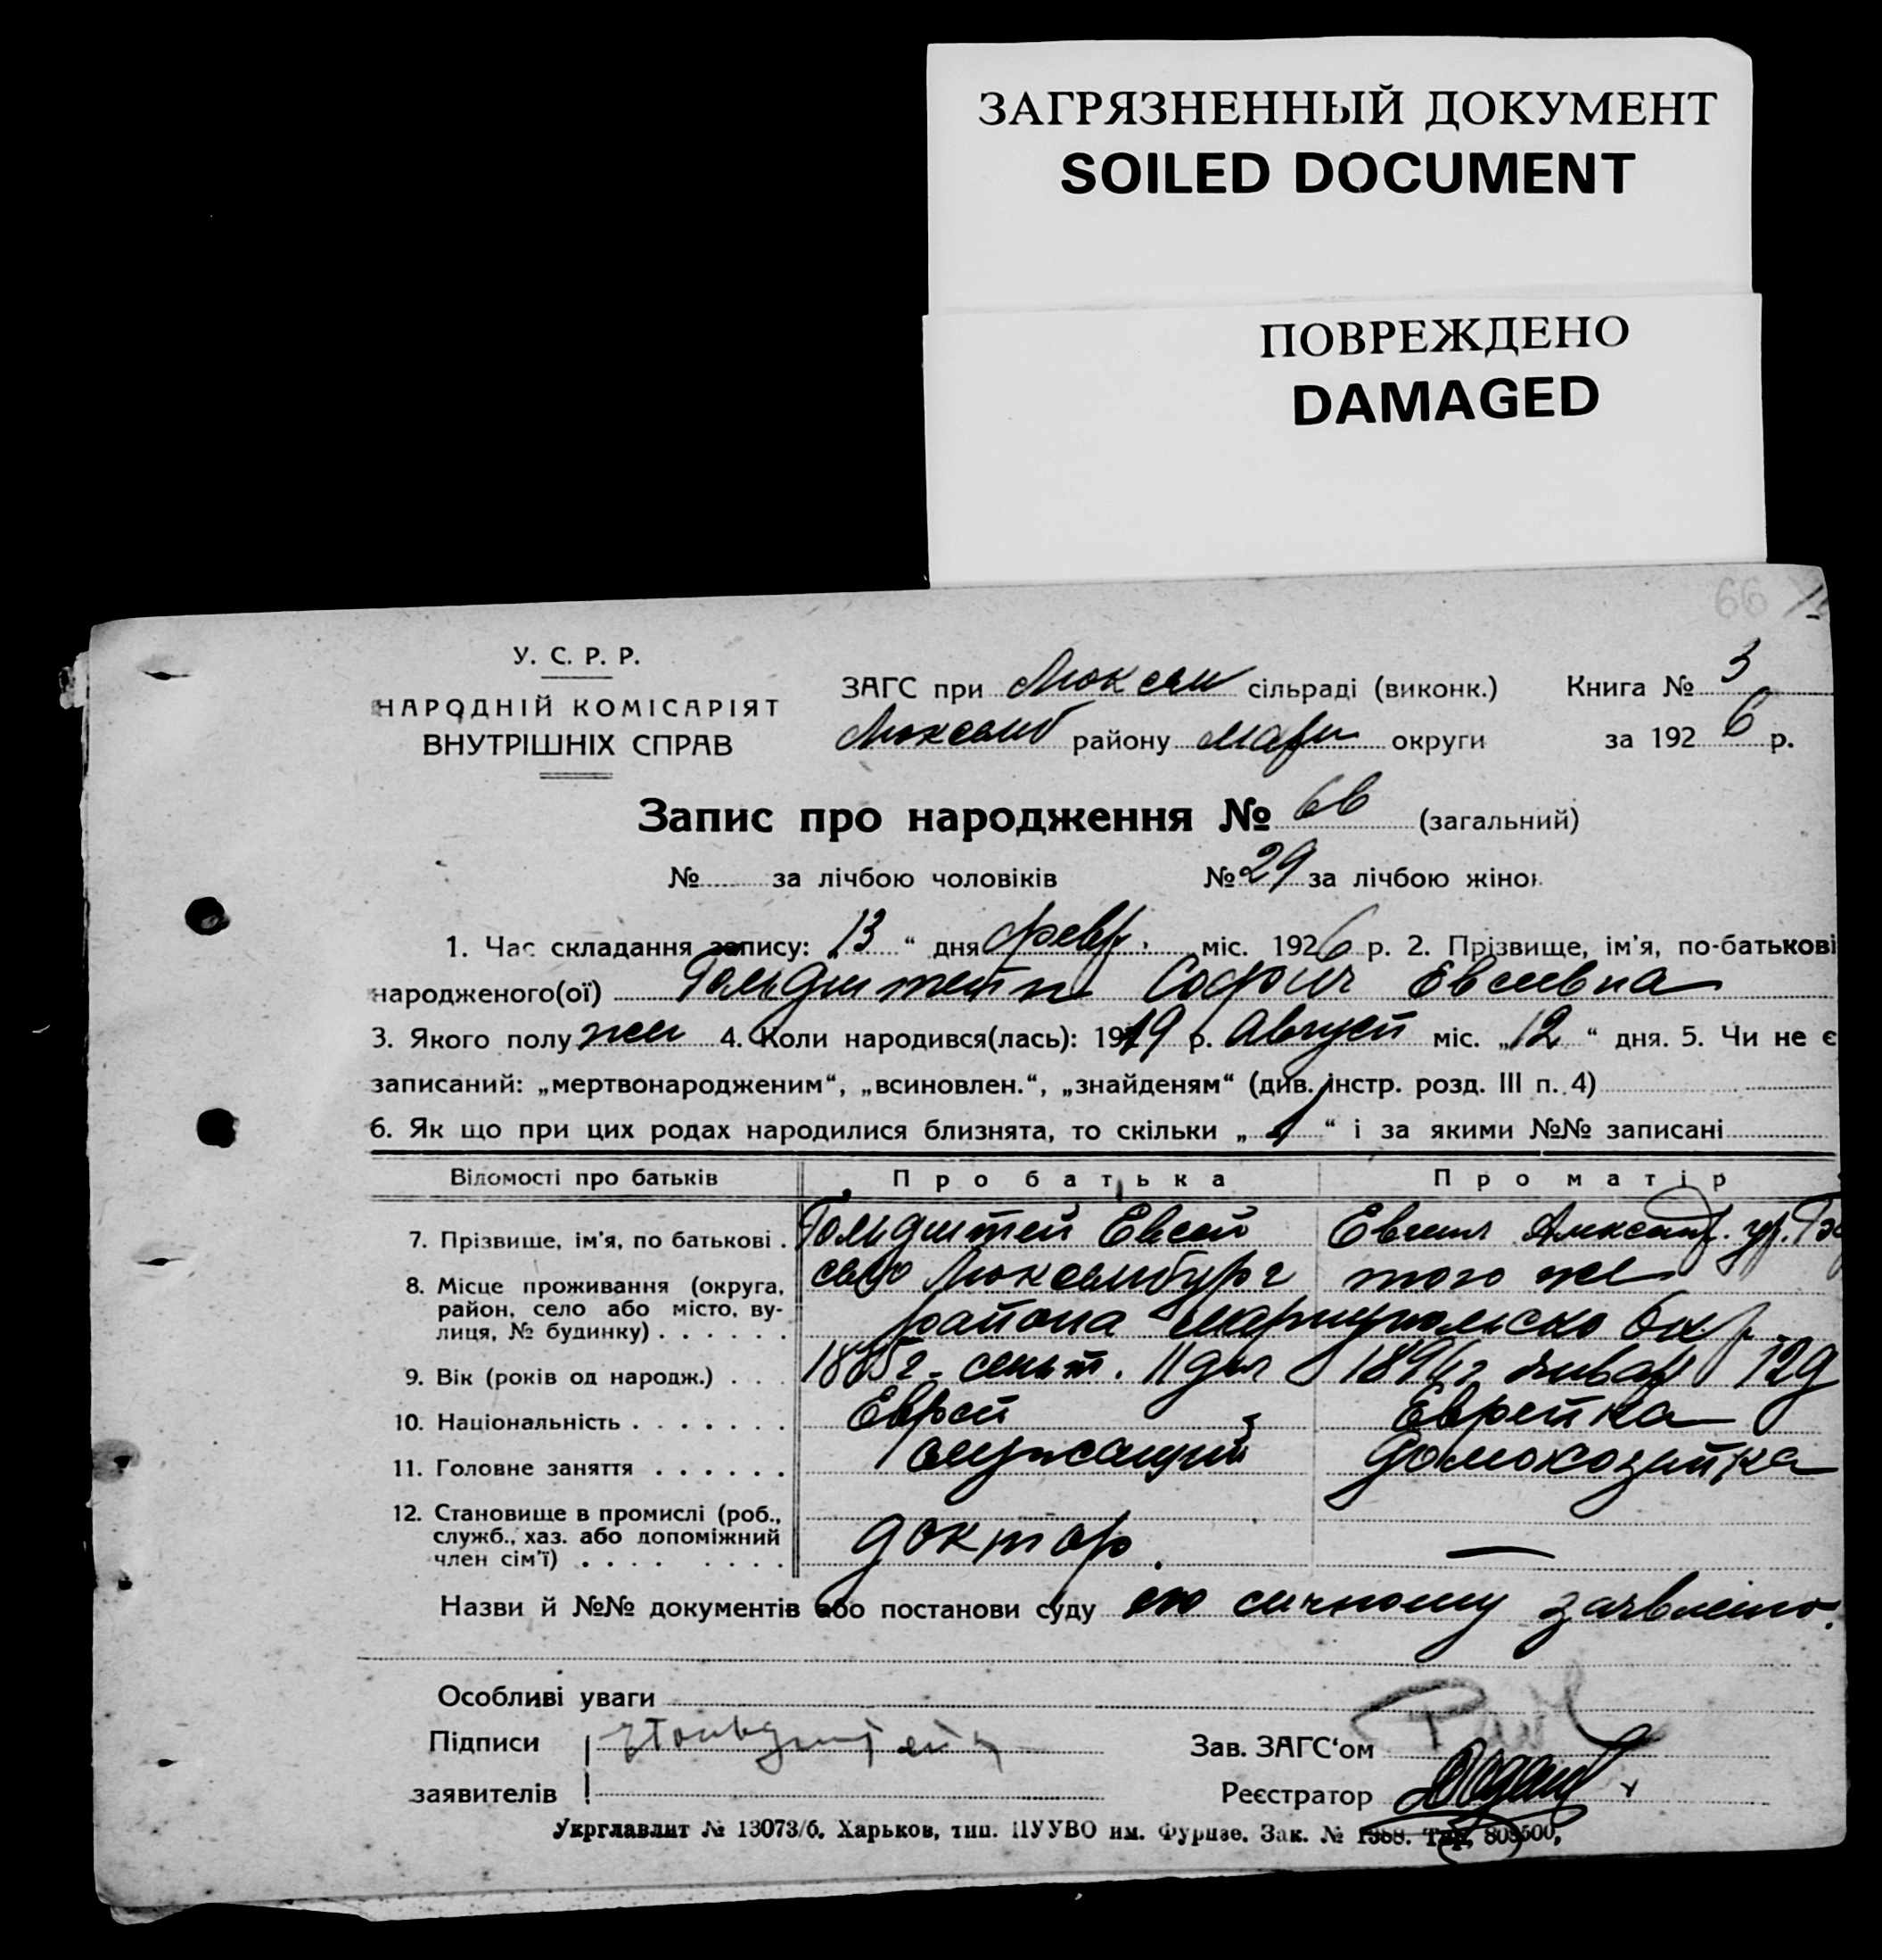 ЗАГРЯЗНЕННЫЙ ДОКУМЕНТ
SOILED DOCUMENT
ПОВРЕЖДЕНО
DAMAGED
66
У. С. Р. Р.
НАРОДНІЙ КОМІСАРІЯТ
ВНУТРІШНІХ СПРАВ
ЗАГС при Люксем сільраді (виконк.) Книга № 3
Люксемб району Мари округи за 1926 р.
Запис про народження № 66 (загальний)
№ за лічбою чоловіків № 29 за лічбою жінок
1. Час складання запису: 13 “ дня февр. міс. 1926 р. 2. Прізвище, ім'я, по-батькові
народженого(ої) Гольдштейн Софья Евсеевна
3. Якого полу жен 4. Коли народився(лась): 1919 р. Август міс. „12 “ дня. 5. Чи не є
записаний: „мертвонародженим“, „всиновлен.“, „знайденям“ (див. інстр. розд. III п. 4)
6. Як що при цих родах народилися близнята, то скільки „ 1 “ і за якими №№ записані
Відомості про батьків Про батька Про матір
7. Прізвище, ім'я, по батькові . Гольдштей Евсей Евгения Александ. ур.
8. Місце проживання (округа, село Люксембург того же
район, село або місто, ву- района Мариупольско Окр.
лиця, № будинку) . . . . . .
9. Вік (років од народж.) . . . сент. 11 дня январ 12 д
10. Національність . . . . . . . Еврей Еврейка
11. Головне заняття . . . . . . служащий домохозяйка
12. Становище в промислі (роб.,
служб., хаз. або допоміжний доктор. —
член сім'ї) . . . . . . . .
Назви й №№ документів або постанови суду по личному заявлению.
Особливі уваги
Підписи Гольдштейн Зав. ЗАГС‘ом
заявителів Реєстратор
Укрглавлит № 13073/б. Харьков, тип. ПУУВО им. Фрунзе. Зак. № 1388.